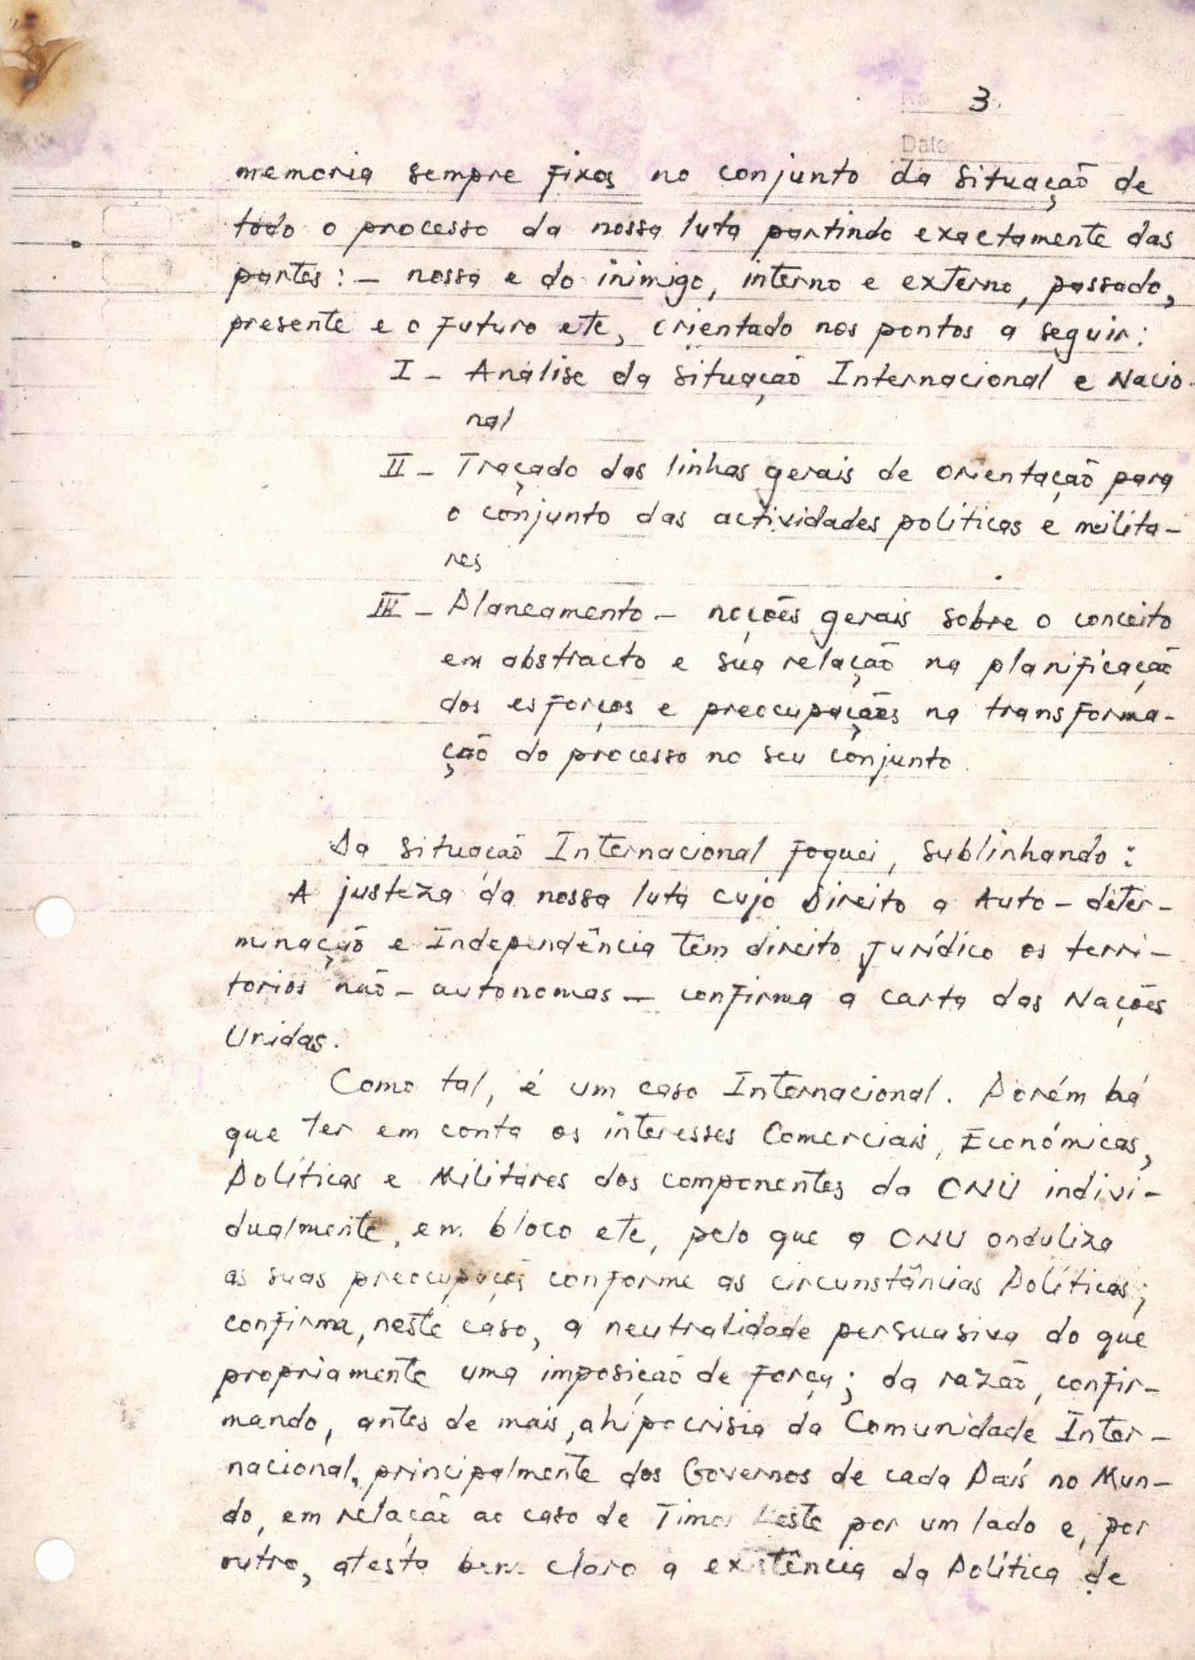 3.
Date
memoria sempre fixos no conjunto da situação de
todo o processo da nossa luta partindo exactamente das
partes: - nossa e do inimigo, interno e externo, passado,
presente e o futuro etc, orientado nos pontos a seguir:
I - Análise da situação Internacional e Nacio-
nal
II - Traçado das linhas gerais de orientação para
o conjunto das actividades políticas e milita-
res
III - Planeamento - noções gerais sobre o conceito
em abstracto e sua relação na planificação
dos esforços e preocupações na transforma-
ção do processo no seu conjunto
Da situação Internacional foquei, sublinhando:
A justeza da nossa luta cujo Direito a Auto-deter-
minação e Independência têm direito jurídico os terri-
torios não-autonomos - confirma a carta das Nações
Unidas.
Como tal, é um caso Internacional. Porém há
que ter em conta os interesses Comerciais, Económicas,
Políticas e Militares dos componentes da ONU indivi-
dualmente, em bloco etc, pelo que a ONU onduliza
as suas preocupaçes conforme as circunstâncias Políticas;
confirma, neste caso, a neutralidade persuasiva do que
propriamente uma imposição de força; da razão, confir-
mando, antes de mais, a hipocrisia da Comunidade Inter-
nacional, principalmente dos Governos de cada País no Mun-
do, em relação ao caso de Timor Leste por um lado e, por
outro, atesta bem claro a existência da Política de